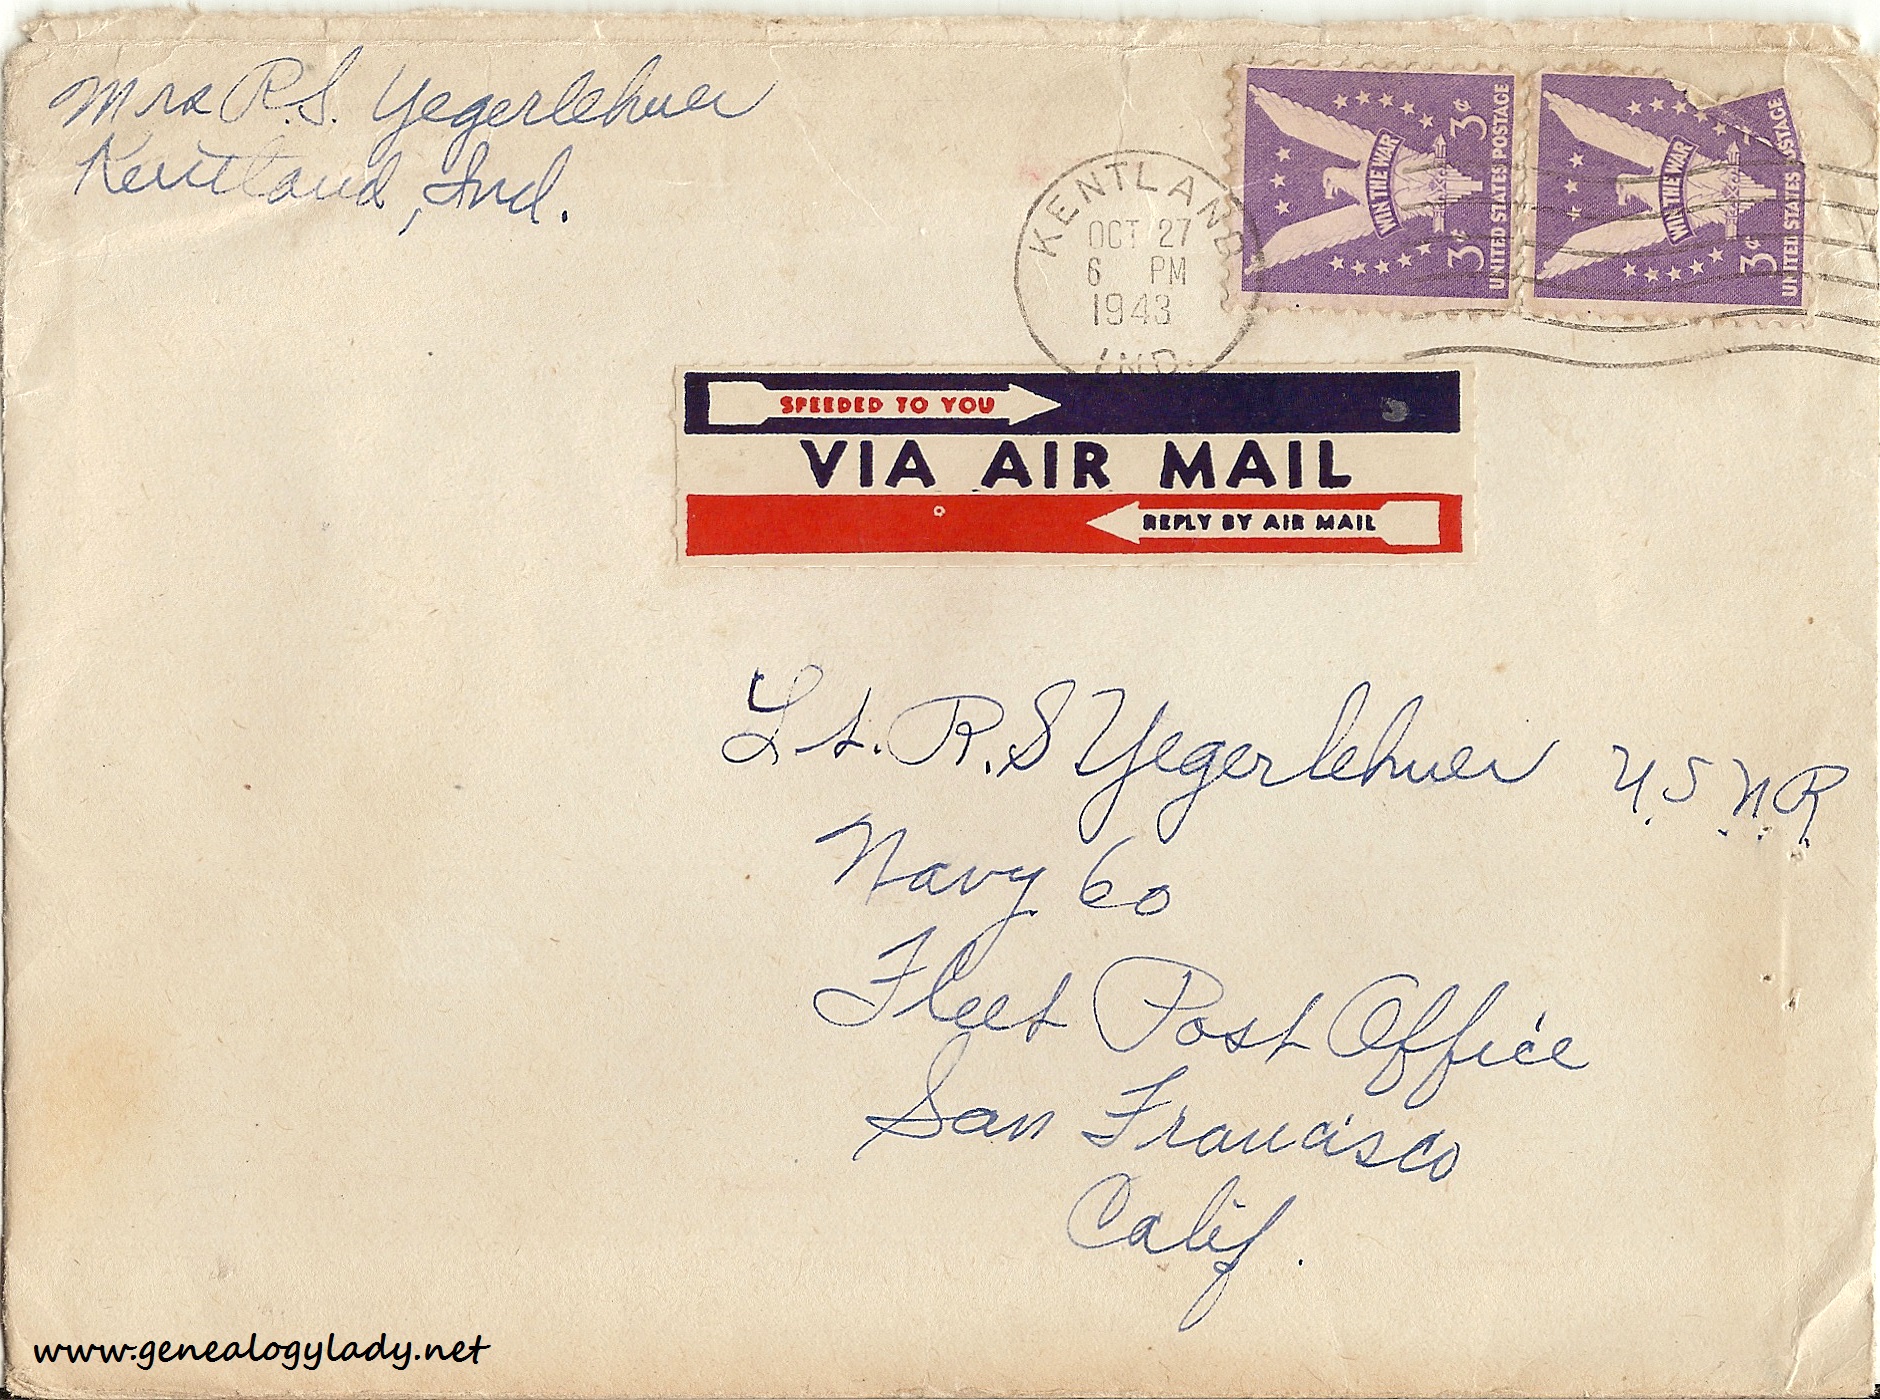 Mrs R.S. Yegerlehner
Kentland, Ind.
KENTLAND
OCT 27
6 PM
1943
IND.
3¢ 3¢
WIN THE WAR
UNITED STATES POSTAGE
3¢
WIN THE WAR
UNITED STATES POSTAGE
SPEEDED TO YOU
VIA AIR MAIL
REPLY BY AIR MAIL
Lt. R.S Yegerlehner U.S.N.R.
Navy 60
Fleet Post Office
San Francisco
Calif.
www.genealogylady.net